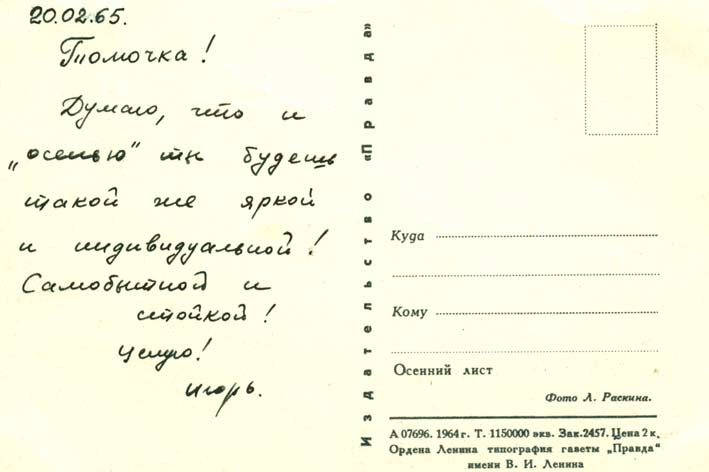 20.02.65.
Томочка!
Думаю, что и
„осенью" ты будешь
такой же яркой
и индивидуальной!
Самобытной и
стойкой!
Целую!
Игорь.
Издательство «Правда»
Куда
Кому
Осенний лист
Фото Л. Раскина.
А 07696. 1964 г. Т. 1150000 экв. Зак. 2457. Цена 2 к.
Ордена Ленина типография газеты „Правда"
имени В. И. Ленина